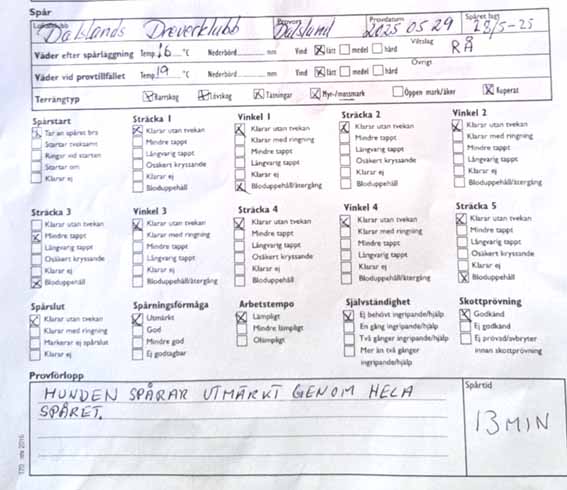 Spår
Lokalklubb Provort Provdatum Spåret lagt
Dalslands Dreverklubb Dalsland 2025 05 29 28/5-25
Väder efter spårläggning Temp. 16 °C Nederbörd mm Vind lätt medel hård Viltslag RÅ
Väder vid provtillfället Temp. 19 °C Nederbörd mm Vind lätt medel hård Övrigt
Terrängtyp Barrskog Lövskog Tätningar Myr-/mossmark Öppen mark/åker Kuperat
Spårstart
Tar an spåret bra
Startar tveksamt
Ringar vid starten
Startar om
Klarar ej
Sträcka 1
Klarar utan tvekan
Mindre tappt
Långvarig tappt
Osäkert kryssande
Klarar ej
Bloduppehåll
Vinkel 1
Klarar utan tvekan
Klarar med ringning
Mindre tappt
Långvarig tappt
Klarar ej
Bloduppehåll/återgång
Sträcka 2
Klarar utan tvekan
Mindre tappt
Långvarig tappt
Osäkert kryssande
Klarar ej
Bloduppehåll
Vinkel 2
Klarar utan tvekan
Klarar med ringning
Mindre tappt
Långvarig tappt
Klarar ej
Bloduppehåll/återgång
Sträcka 3
Klarar utan tvekan
Mindre tappt
Långvarig tappt
Osäkert kryssande
Klarar ej
Bloduppehåll
Vinkel 3
Klarar utan tvekan
Klarar med ringning
Mindre tappt
Långvarig tappt
Klarar ej
Bloduppehåll/återgång
Sträcka 4
Klarar utan tvekan
Mindre tappt
Långvarig tappt
Osäkert kryssande
Klarar ej
Bloduppehåll
Vinkel 4
Klarar utan tvekan
Klarar med ringning
Mindre tappt
Långvarig tappt
Klarar ej
Bloduppehåll/återgång
Sträcka 5
Klarar utan tvekan
Mindre tappt
Långvarig tappt
Osäkert kryssande
Klarar ej
Bloduppehåll
Spårslut
Klarar utan tvekan
Klarar med ringning
Markerar ej spårslut
Klarar ej
Spårningsförmåga
Utmärkt
God
Mindre god
Ej godtagbar
Arbetstempo
Lämpligt
Mindre lämpligt
Olämpligt
Självständighet
Ej behövt ingripande/hjälp
En gång ingripande/hjälp
Två gånger ingripande/hjälp
Mer än två gånger
ingripande/hjälp
Skottprövning
Godkänd
Ej godkänd
Ej prövad/avbryter
innan skottprövning
Provförlopp
HUNDEN SPÅRAR UTMÄRKT GENOM HELA
SPÅRET.
Spårtid
13 MIN